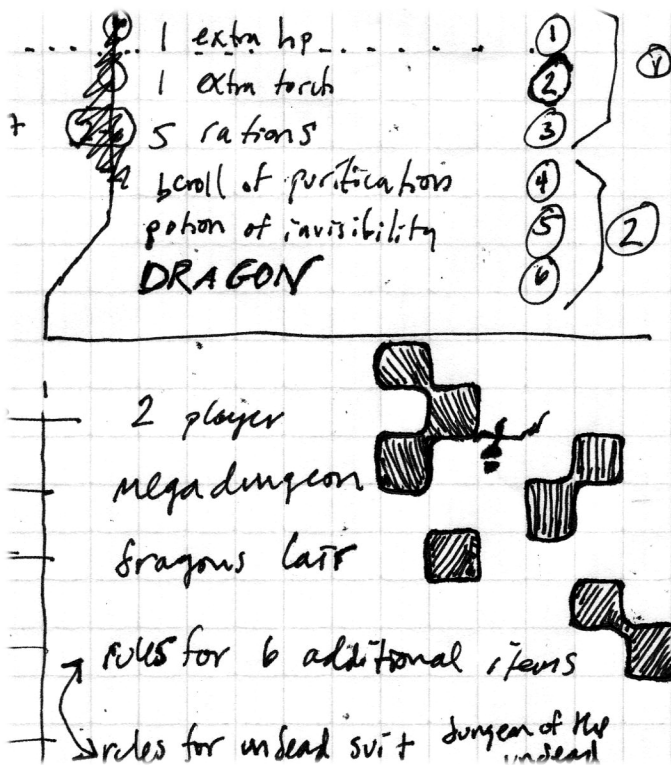 1 extra hp 1
1 extra torch 2
5 rations 3
scroll of purification 4
potion of invisibility 5 2
DRAGON 6
2 player
megadungeon
dragons lair
rules for 6 additional items
rules for undead suit dungeon of the
undead